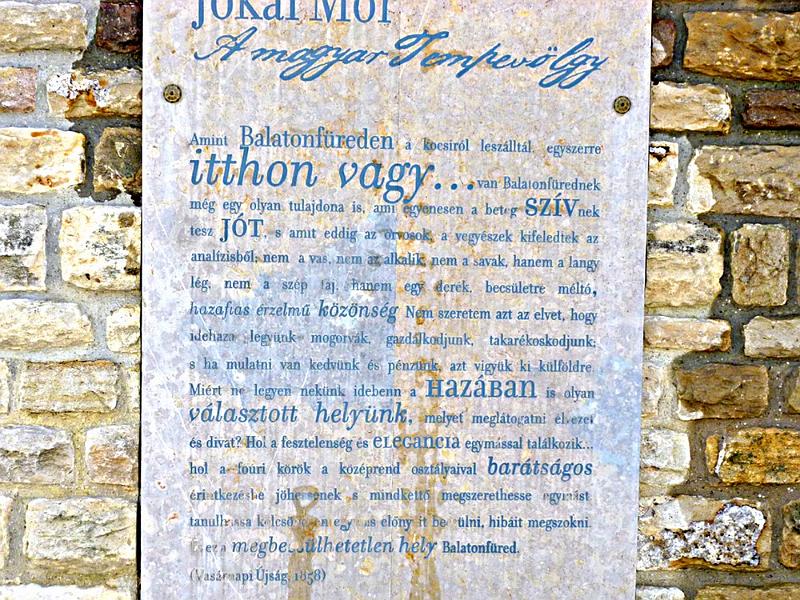 Jókai Mór
A magyar Tempevölgy
Amint Balatonfüreden a kocsiról leszálltál, egyszerre
itthon vagy... van Balatonfürednek
még egy olyan tulajdona is, ami egyenesen a beteg SZÍVnek
tesz JÓT, s amit eddig az orvosok, a vegyészek kifeledtek az
analízisből; nem a vas, nem az alkalik, nem a savak, hanem a langy
lég, nem a szép táj, hanem egy derék, becsületre méltó,
hazafias érzelmű közönség Nem szeretem azt az elvet, hogy
idehaza legyünk mogorvák, gazdálkodjunk, takarékoskodjunk;
s ha mulatni van kedvünk és pénzünk, azt vigyük ki külföldre.
Miért ne legyen nekünk idebenn a HAZÁBAN is olyan
választott helyünk, melyet meglátogatni élvezet
és divat? Hol a fesztelenség és ELEGANCIA egymással találkozik...
hol a főúri körök a középrend osztályaival barátságos
érintkezésbe jöhessenek s mindkettő megszerethesse egymást,
tanulhassa kölcsönösen egymás előnyít becsülni, hibáit megszokni.
megbecsülhetetlen hely Balatonfüred.
(Vasárnapi Újság, 1858)